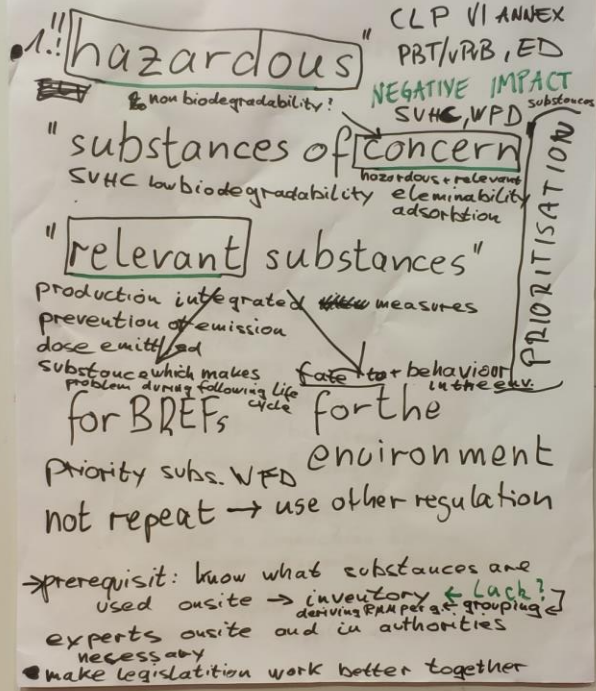 • 1.!! "hazardous"
CLP VI ANNEX
PBT/vPvB, ED
NEGATIVE IMPACT
SVHC, WPD substances
non biodegradability?
"substances of concern
hazardous + relevant
SVHC low biodegradability eleminability
adsorbtion
PRIORITISATION
"relevant substances"
production integrated measures
prevention of emission
dose emitted
substance which makes
problem during following life
cycle
fate + behaviour
in the env.
for BREFs
for the
environment
priority subs. WFD
not repeat → use other regulation
→ prerequisit: know what substances are
used onsite → inventory ← Lack?
deriving RMM per ← grouping
experts onsite and in authorities
necessary
• make legistatition work better together